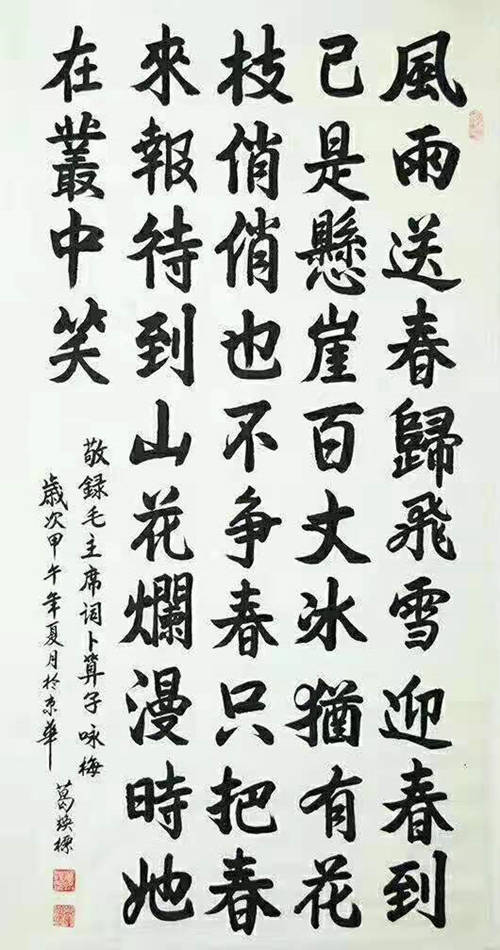 風雨送春歸飛雪迎春到
已是懸崖百丈冰猶有花
枝俏俏也不争春只把春
來報待到山花爛漫時她
在叢中笑
敬録毛主席词卜算子咏梅
歲次甲午年夏月於京華
葛焕標